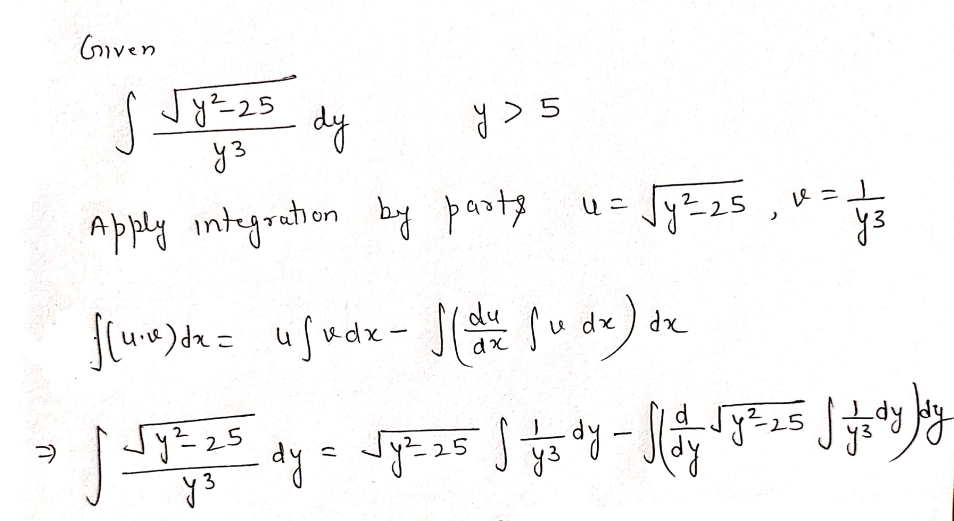 Given
∫ √(y²-25) / y³ dy    y > 5
Apply integration by parts u = √(y²-25) , v = 1/y³
∫(u.v)dx = u∫vdx - ∫(du/dx ∫v dx) dx
⇒ ∫ √(y²-25) / y³ dy = √(y²-25) ∫ 1/y³ dy - ∫(d/dy √(y²-25) ∫ 1/y³ dy)dy